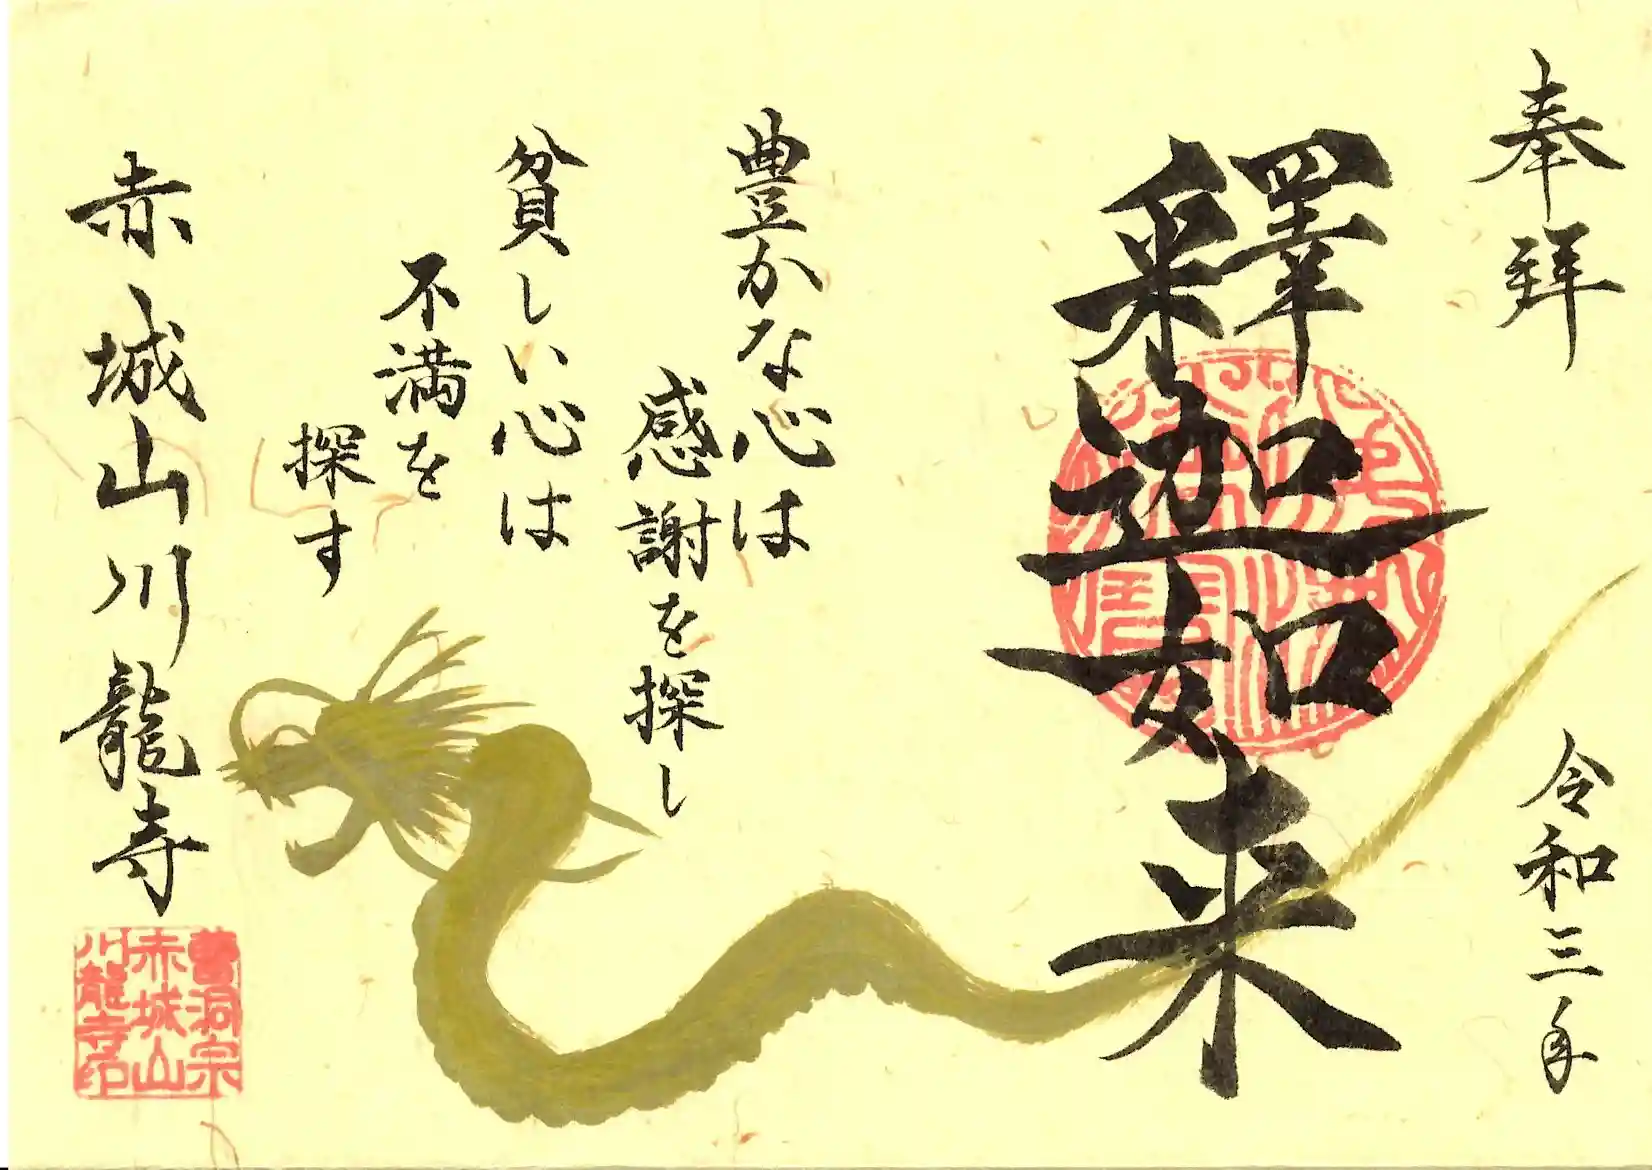 奉拜
令和三年
釋迦如来
豊かな心は
感謝を探し
貧しい心は
不満を
探す
赤城山川龍寺
曹洞宗
赤城山
川龍寺印